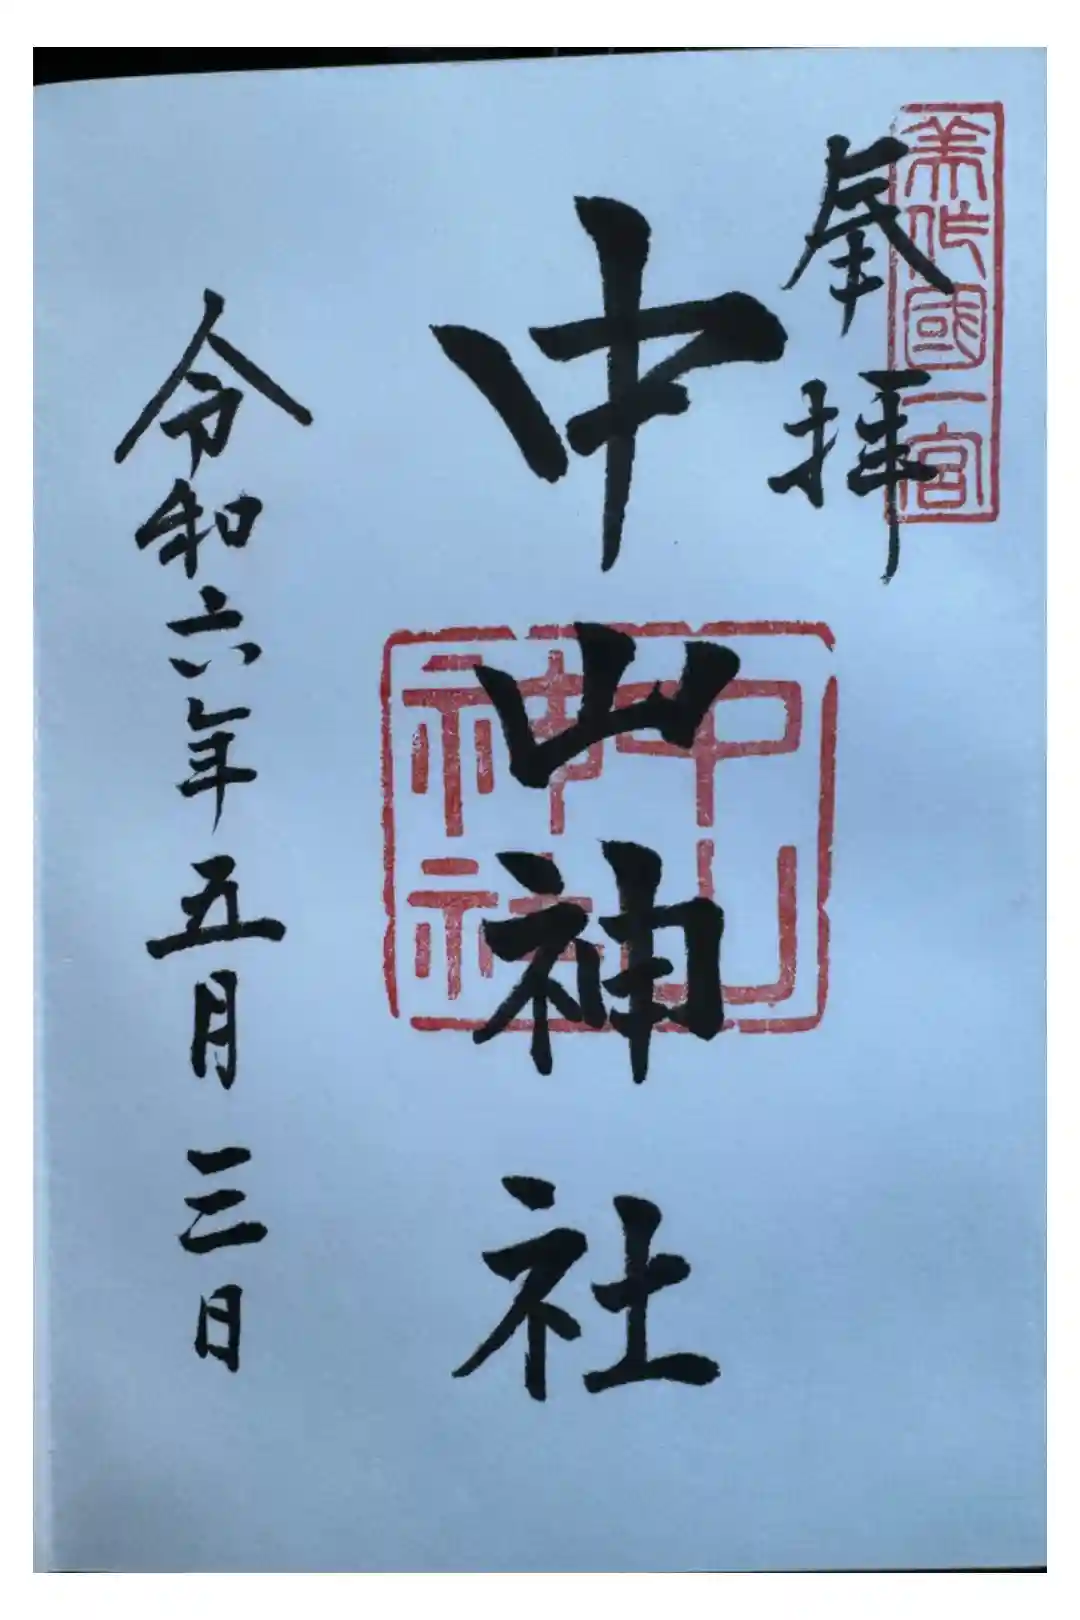 美作國一宮
奉拝
中山神社
中山
神社
令和六年五月三日